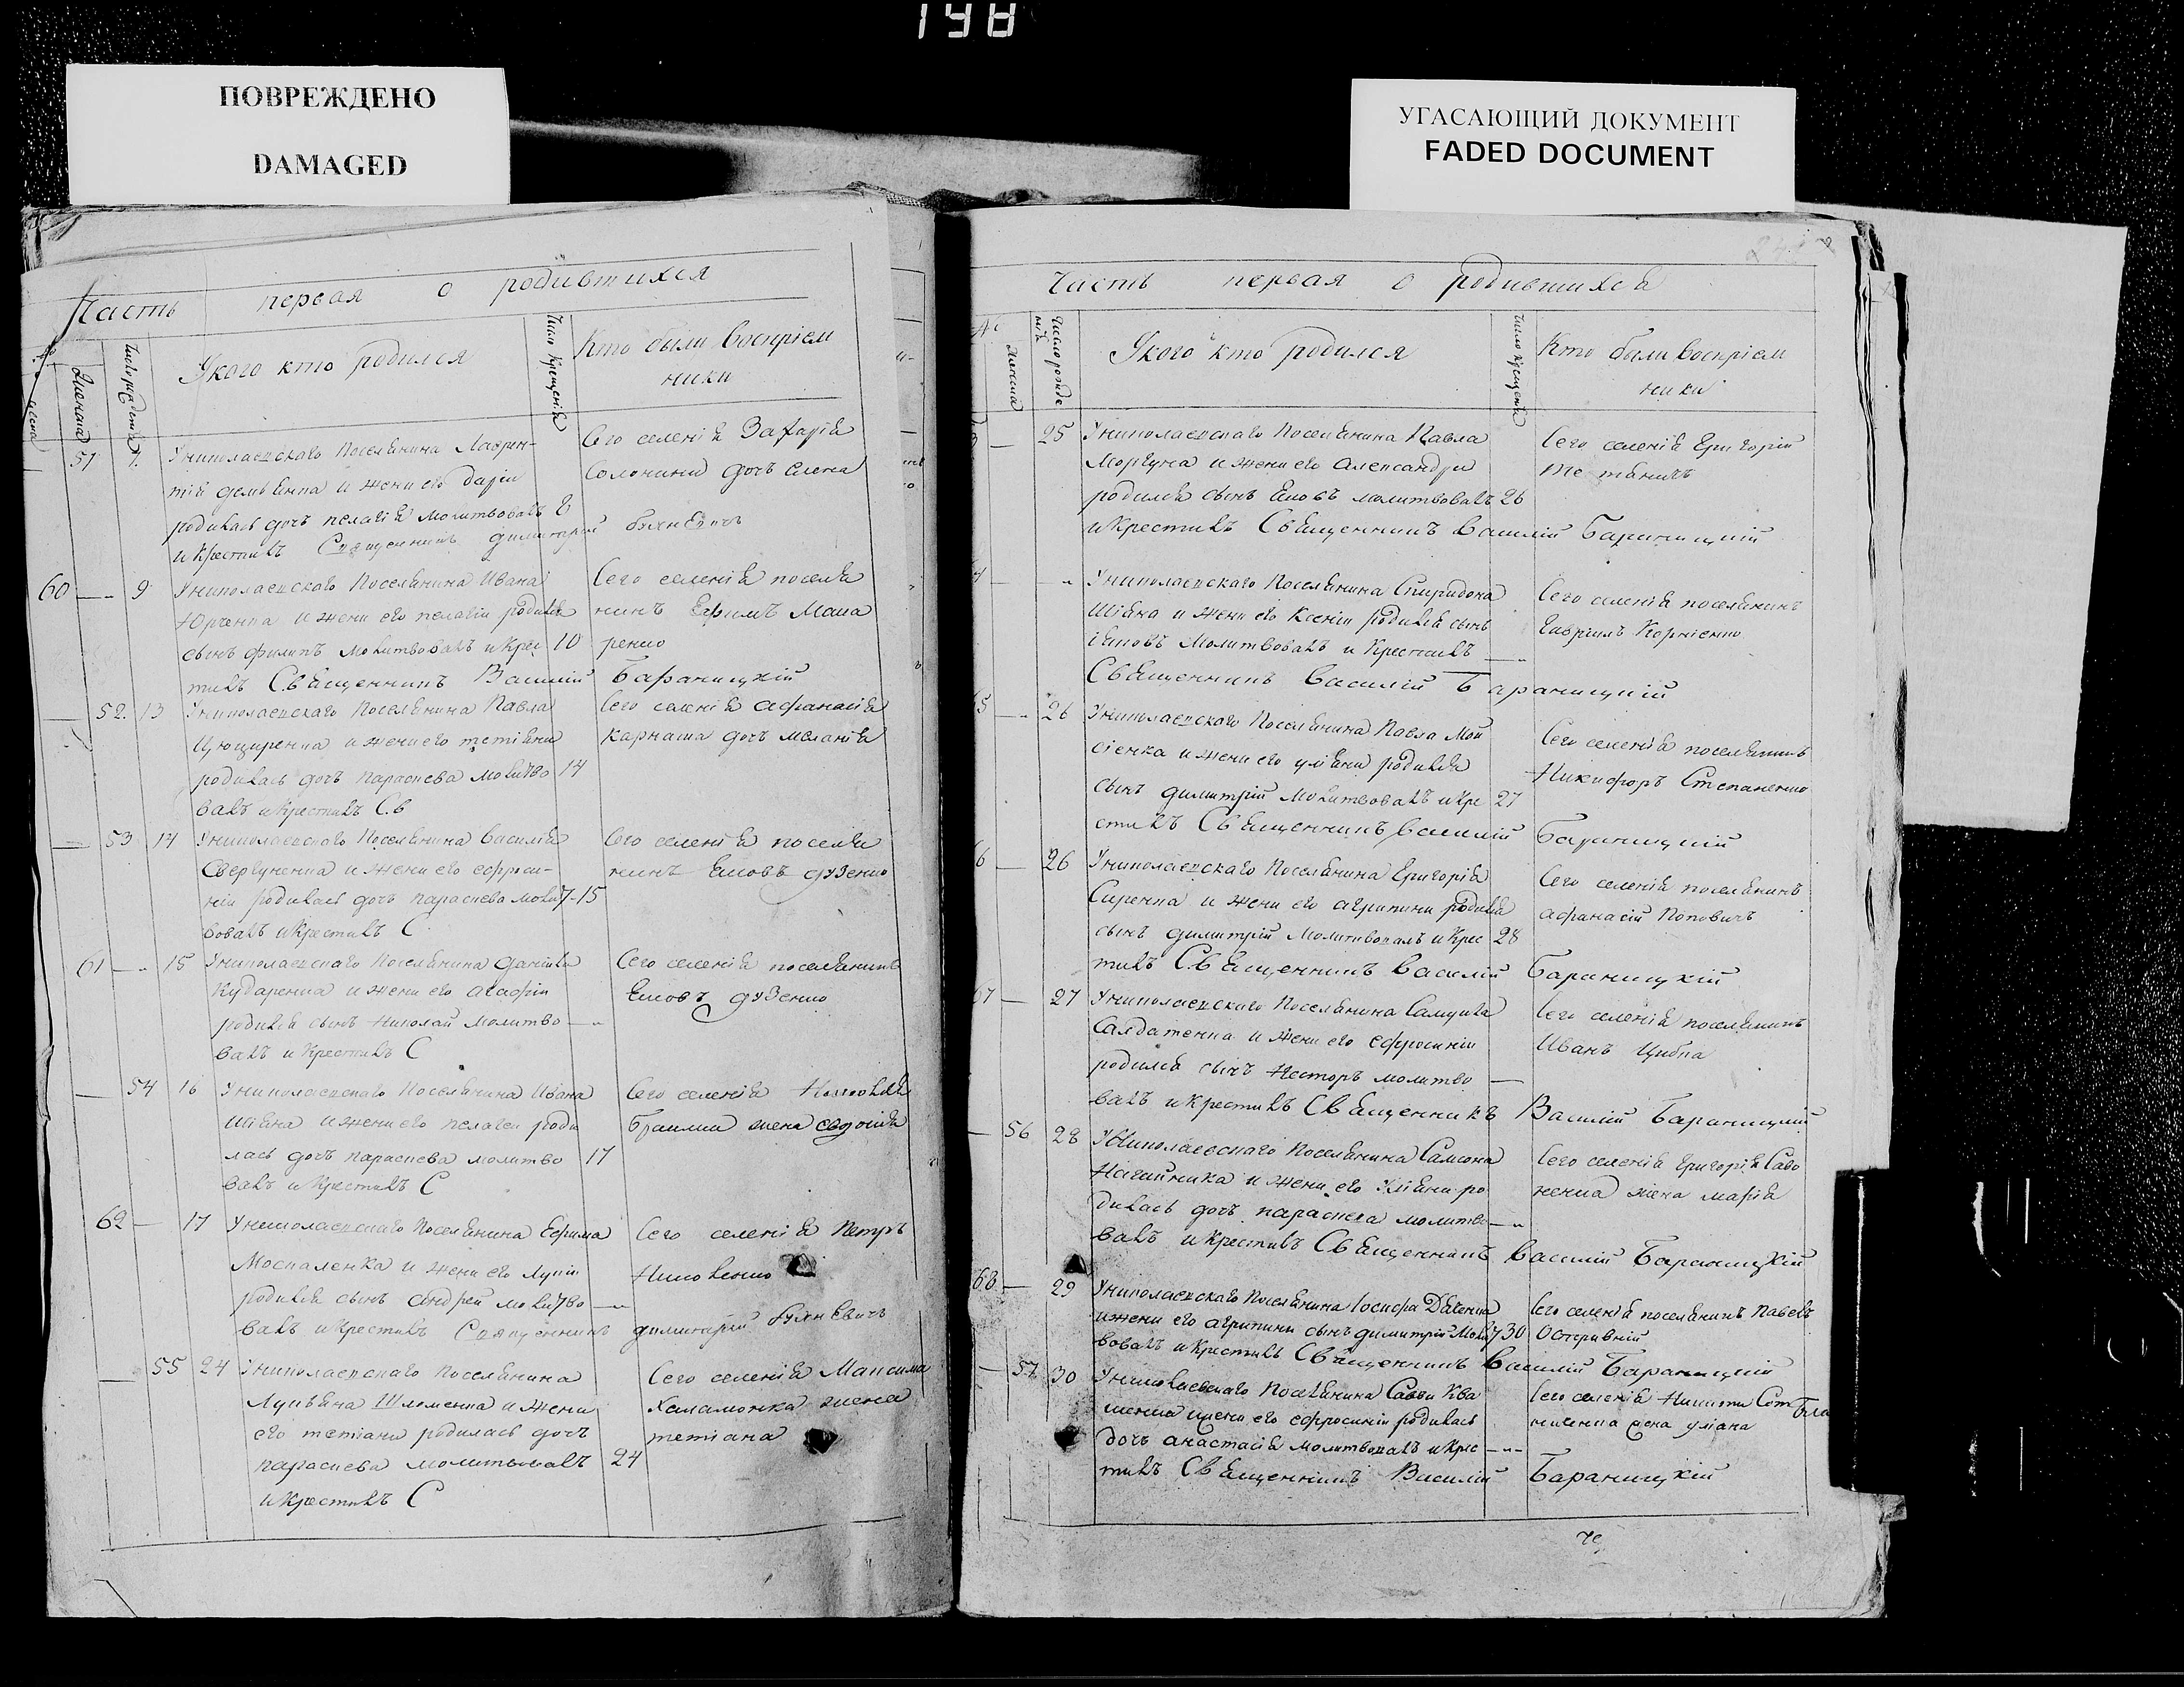 198
ПОВРЕЖДЕНО
DAMAGED
УГАСАЮЩИЙ ДОКУМЕНТ
FADED DOCUMENT
Часть первая о родившихся
У кого кто родился
Кто были восприем
ники
51 7. У николаевскаго поселянина Лаврен-
тія демьянка и жени его даріи
родилась дочъ пелагія молитвовалъ 8
и крестилъ Священникъ димитрій
Сего селенія Захарія
Солонини дочъ елена
60 — 9 У николаевскаго поселянина Ивана
Юрченка и жени его пелагіи родился
сынъ филипъ молитвовалъ и крес 10
тилъ Священникъ Василій Бараницкій
Сего селенія поселя
нинъ Ефимъ Мака
ренко
— 52. 13 У николаевскаго поселянина Павла
и жени его тетіяни
родилась дочъ параскева молитво 14
валъ и крестилъ С.в
Сего селенія афанасія
карнаша дочъ меланія
— 53 14 У николаевскаго поселянина василія
и жени его ефроси-
ніи родилась дочъ параскева молит 15
вовалъ и крестилъ С
Сего селенія поселя
нинъ Яковъ дузенко
61 — 15 У николаевскаго поселянина даніила
Кударенка и жени его агафіи
родился сынъ Николай молитво
валъ и крестилъ С
Сего селенія поселянинъ
Яковъ дузенко
— 54 16 У николаевскаго поселянина Ивана
Шіяна и жени его пелагеи роди
лась дочъ параскева молитво 17
валъ и крестилъ С
Сего селенія
жена евдокія
62 — 17 У николаевскаго поселянина Ефима
Москаленка и жени его
родился сынъ андрей молитво
валъ и крестилъ Священникъ димитрій
Сего селенія Петръ
— 55 24 У николаевскаго поселянина
Лукьяна и жени
его тетіани родилась дочъ
параскева молитвовалъ 24
и крестилъ С
Сего селенія Максима
жена
тетіана
Часть первая о родившихся
У кого кто родился
Кто были восприем
ники
— 25 У николаевскаго поселянина Павла
Моргуна и жени его александри
родился сынъ Яковъ молитвовалъ 26
и крестилъ Священникъ Василій Бараницкій
Сего селенія Григорій
— У николаевскаго поселянина Спиридона
Шіяна и жени его Ксеніи родился сынъ
іяковъ молитвовалъ и крестилъ
Священникъ Василій Бараницкій
Сего селенія поселянинъ
Гавріилъ Корніенко
— 26 У николаевскаго поселянина Павла Мой
сіенка и жени его уліяни родился
сынъ димитрій молитвовалъ и кре 27
стилъ Священникъ Василій Бараницкій
Сего селенія поселянинъ
Никифоръ Степаненко
— 26 У николаевскаго поселянина Григорія
Сиренка и жени его агрипини родился
сынъ димитрій молитвовалъ и крес 28
тилъ Священникъ Василій Бараницкій
Сего селенія поселянинъ
афанасій Поповичъ
67 — 27 У николаевскаго поселянина Самуила
Салдатенка и жени его ефросиніи
родился сынъ Несторъ молитво
валъ и крестилъ Священникъ Василій Бараницкій
Сего селенія поселянинъ
Иванъ Цибка
— 56 28 У Николаевскаго поселянина Самсона
Нагайника и жени его Уліяни ро
дилась дочъ параскева молитво
валъ и крестилъ Священникъ Василій Бараницкій
Сего селенія Григорія Саво
ненка жена марія
68 — 29 У николаевскаго поселянина Іосифа Дяченка
и жени его агрипини сынъ димитрій молит 30
вовалъ и крестилъ Священникъ Василій Бараницкій
Сего селенія поселянинъ Павелъ
57 30 У николаевскаго поселянина Савви Ква
шенка и жени его ефросиніи родилась
дочъ анастасія молитвовалъ и крес
тилъ Священникъ Василій Бараницкій
Сего селенія Никити
жена уліана